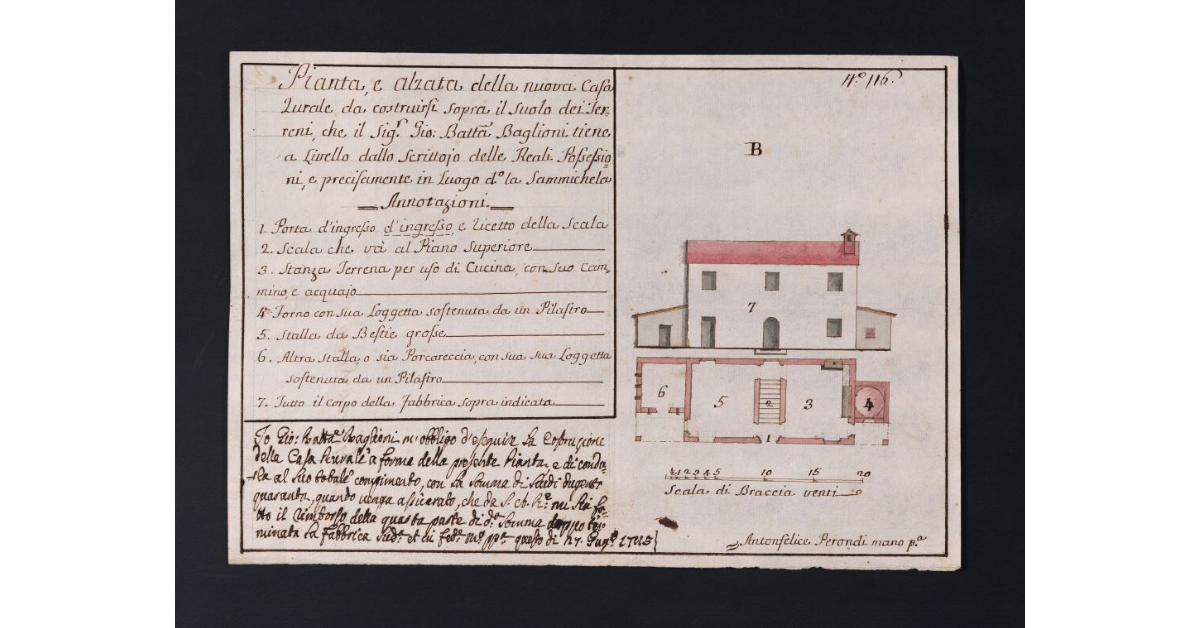 Pianta, e alzata della nuova Casa
Rurale, da costruirsi sopra il suolo dei Ter-
reni, che il Sig.r Gio: Batta Baglioni tiene
a Livello dallo Scrittojo delle Reali Possessio-
ni, e precisamente in Luogo d.o la Sammichela
Annotazioni.
1. Porta d'ingresso d'ingresso e Ricetto della Scala
2. Scala che và al Piano Superiore
3. Stanza Terrena per uso di Cucina, con suo Cam,
mino, e acquajo
4. Forno con sua Loggetta sostenuta da un Pilastro
5. Stalla da Bestie grosse
6. Altra stalla, o sia Porcareccia, con sua sua Loggetta
sostenuta da un Pilastro
7. Tutto il corpo della Fabbrica sopra indicata
Io Gio: Batta Baglioni m'obbligo d'eseguir la Costruzione
della Casa Rurale a forma della presente Pianta, e di condu-
rla al suo totale compimento, con la Somma di Scudi dugent
quaranta, quando venga assicurato, che da S. mi sia fa-
tto il rimborso della quarta parte di d.a Somma doppo ter-
minata la Fabbrica questo dì 27.
N.o 116.
B
7
6
5
2
3
4
1
1 2 3 4 5 10 15 20
Scala di Braccia venti
Antonfelice Perondi mano p.a